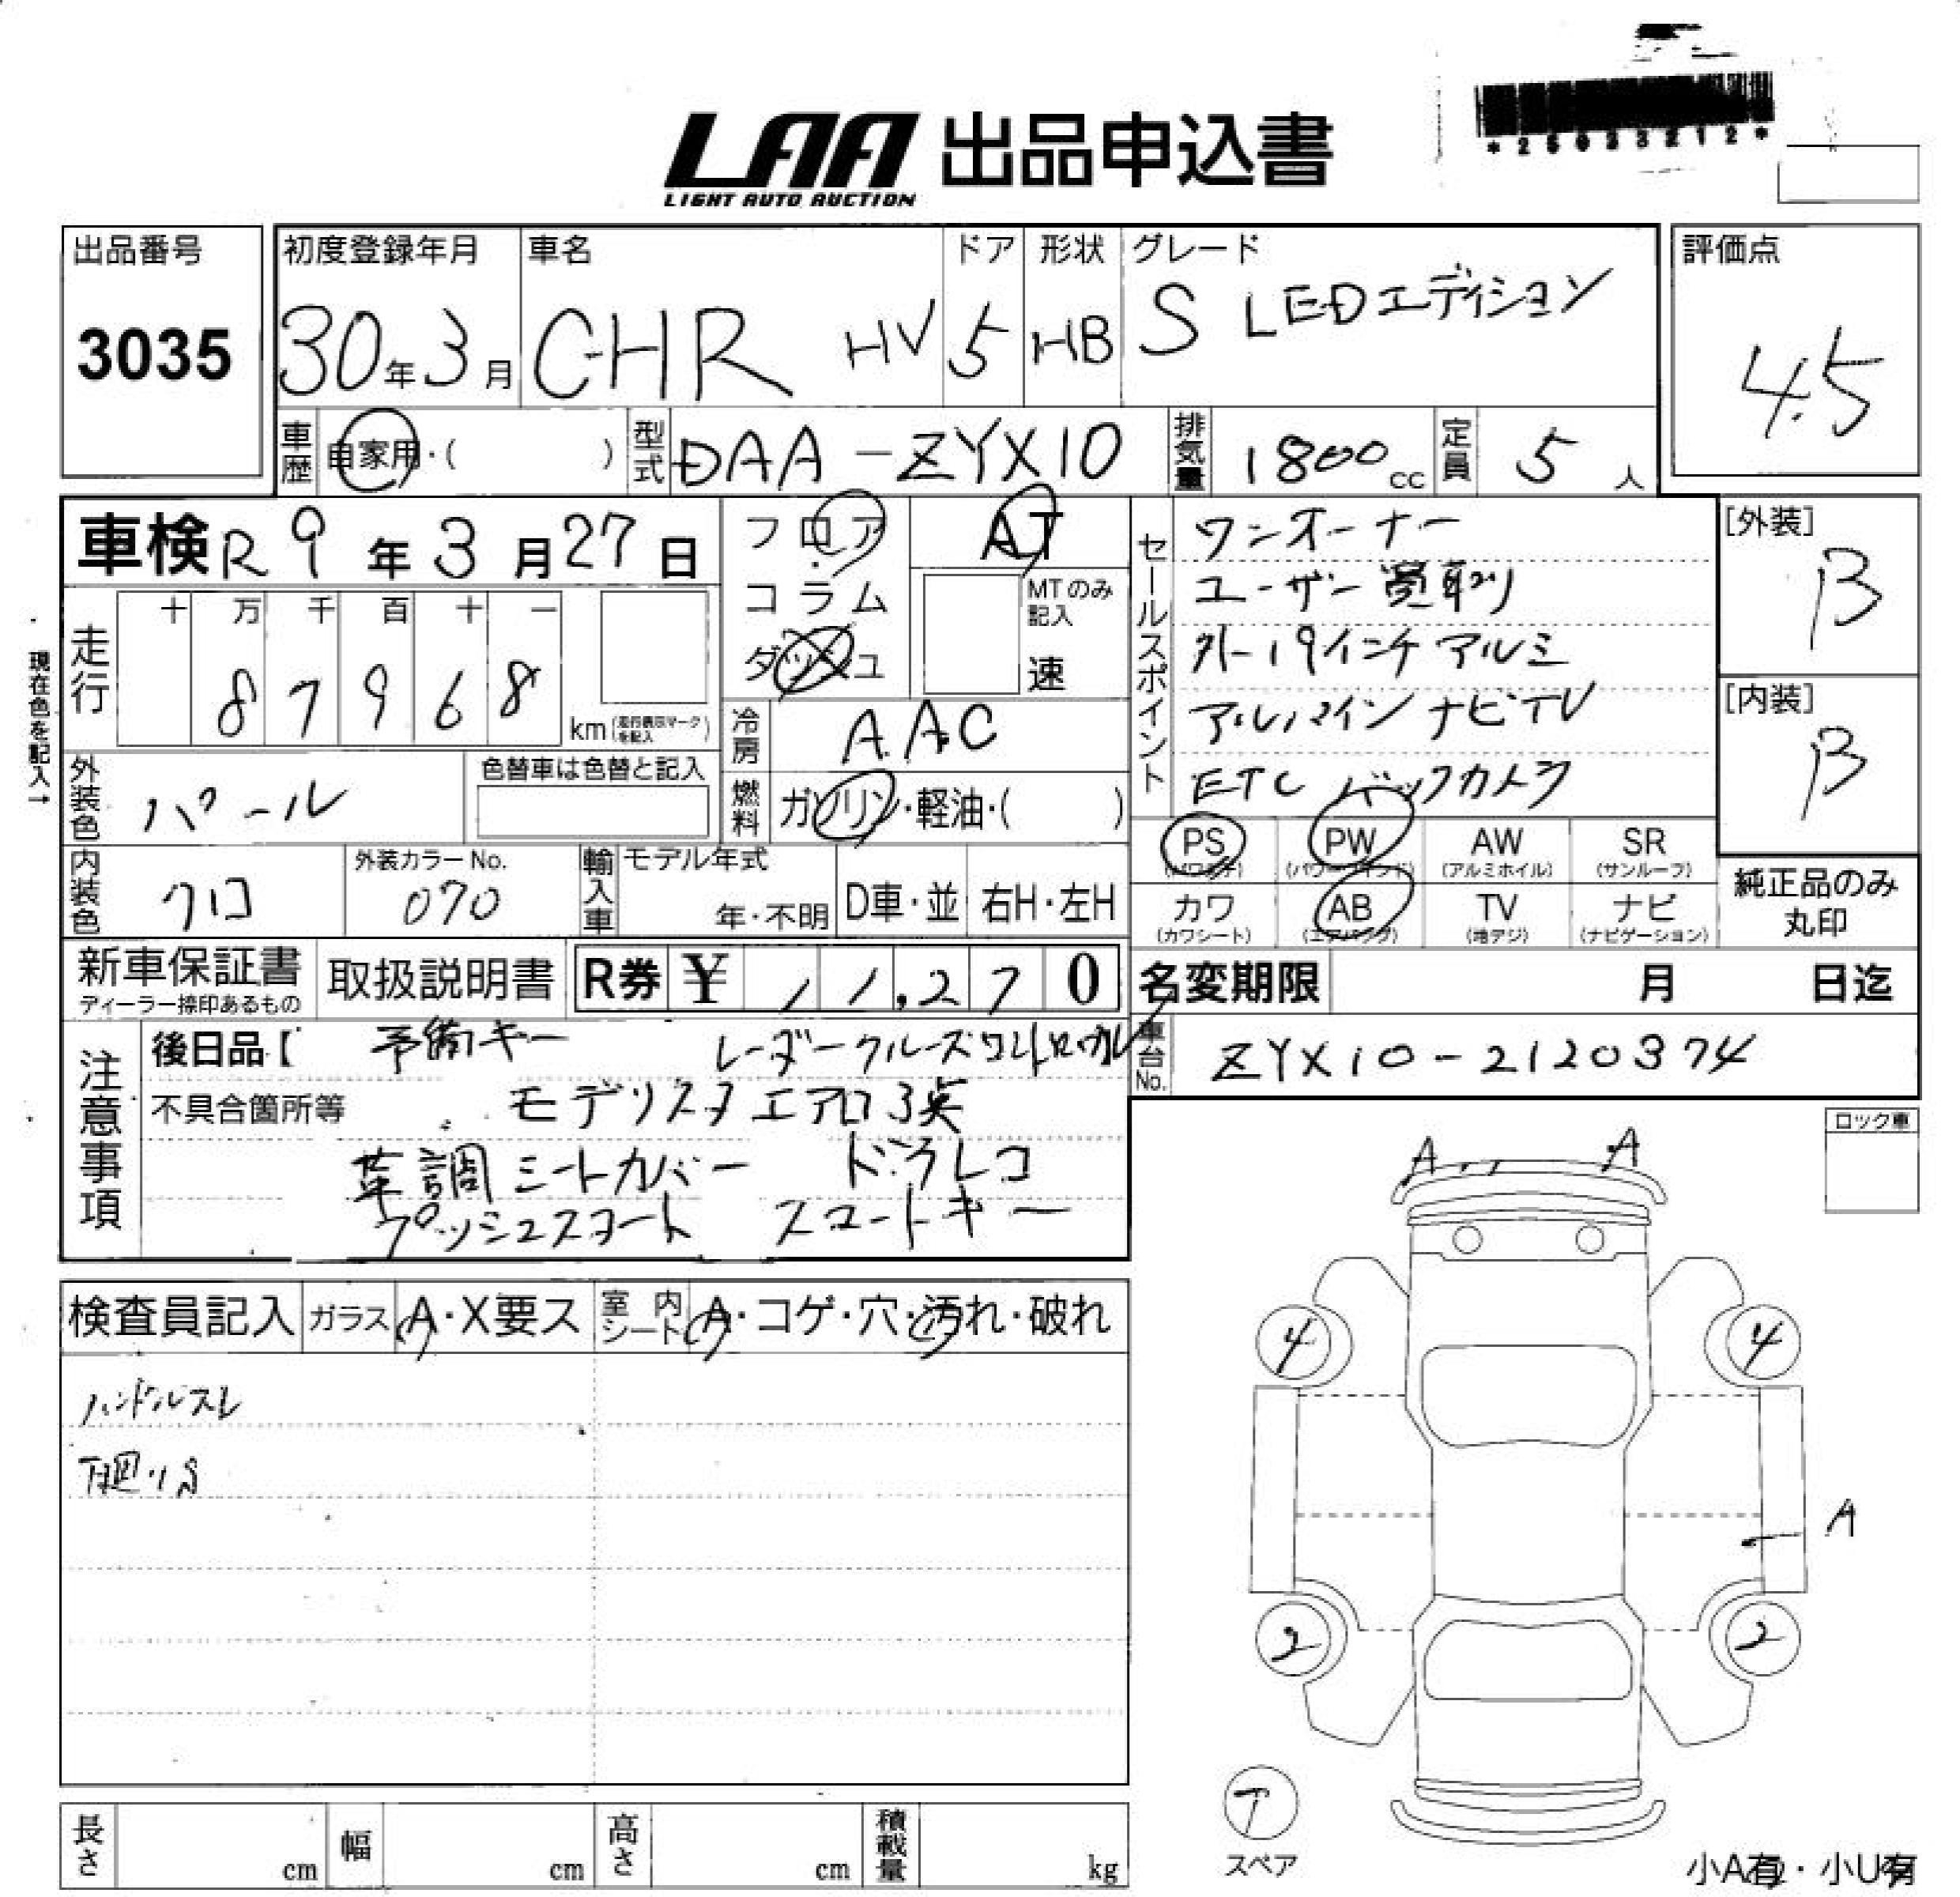 *25023212*
LAA 出品申込書
LIGHT AUTO AUCTION
出品番号 初度登録年月 車名 ドア 形状 グレード 評価点
3035 30年3月 CHR HV 5 HB S LEDエディション 4.5
車歴 自家用・( ) 型式 DAA-ZYX10 排気量 1800cc 定員 5人
車検 R9年3月27日 フロア AT
コラム MTのみ記入
ダッシュ 速
走行 十 万 千 百 十 一
87968
km(走行表示マークを記入)
現在色を記入→
冷房 AAC
外装色 パール 色替車は色替と記入 燃料 ガソリン・軽油・( )
内装色 クロ 外装カラーNo. 070 輸入車 モデル年式 年・不明 D車・並 右H・左H
セールスポイント ワンオーナー
ユーザー買取り
外-19インチアルミ
アルパイン ナビTV
ETC バックカメラ
[外装] B
[内装] B
PS PW AW SR
(パワステ) (パワーウインド) (アルミホイル) (サンルーフ)
カワ AB TV ナビ
(カワシート) (エアバッグ) (地デジ) (ナビゲーション)
純正品のみ
丸印
新車保証書 取扱説明書 R券 ¥ 11,270 名変期限 月 日迄
ディーラー捺印あるもの
車台No. ZYX10-2120374
注意事項 後日品【 予備キー レーダークルーズコントロール
不具合箇所等 モデリスタエアロ3点
革調シートカバー ドラレコ
プッシュスタート スマートキー
ロック車
検査員記入 ガラス A・X要ス 室内シート A・コゲ・穴・汚れ・破れ
ハンドルスレ
下廻りS
A A
4 4
A
2 2
T
スペア
小A有・小U有
長さ cm 幅 cm 高さ cm 積載量 kg